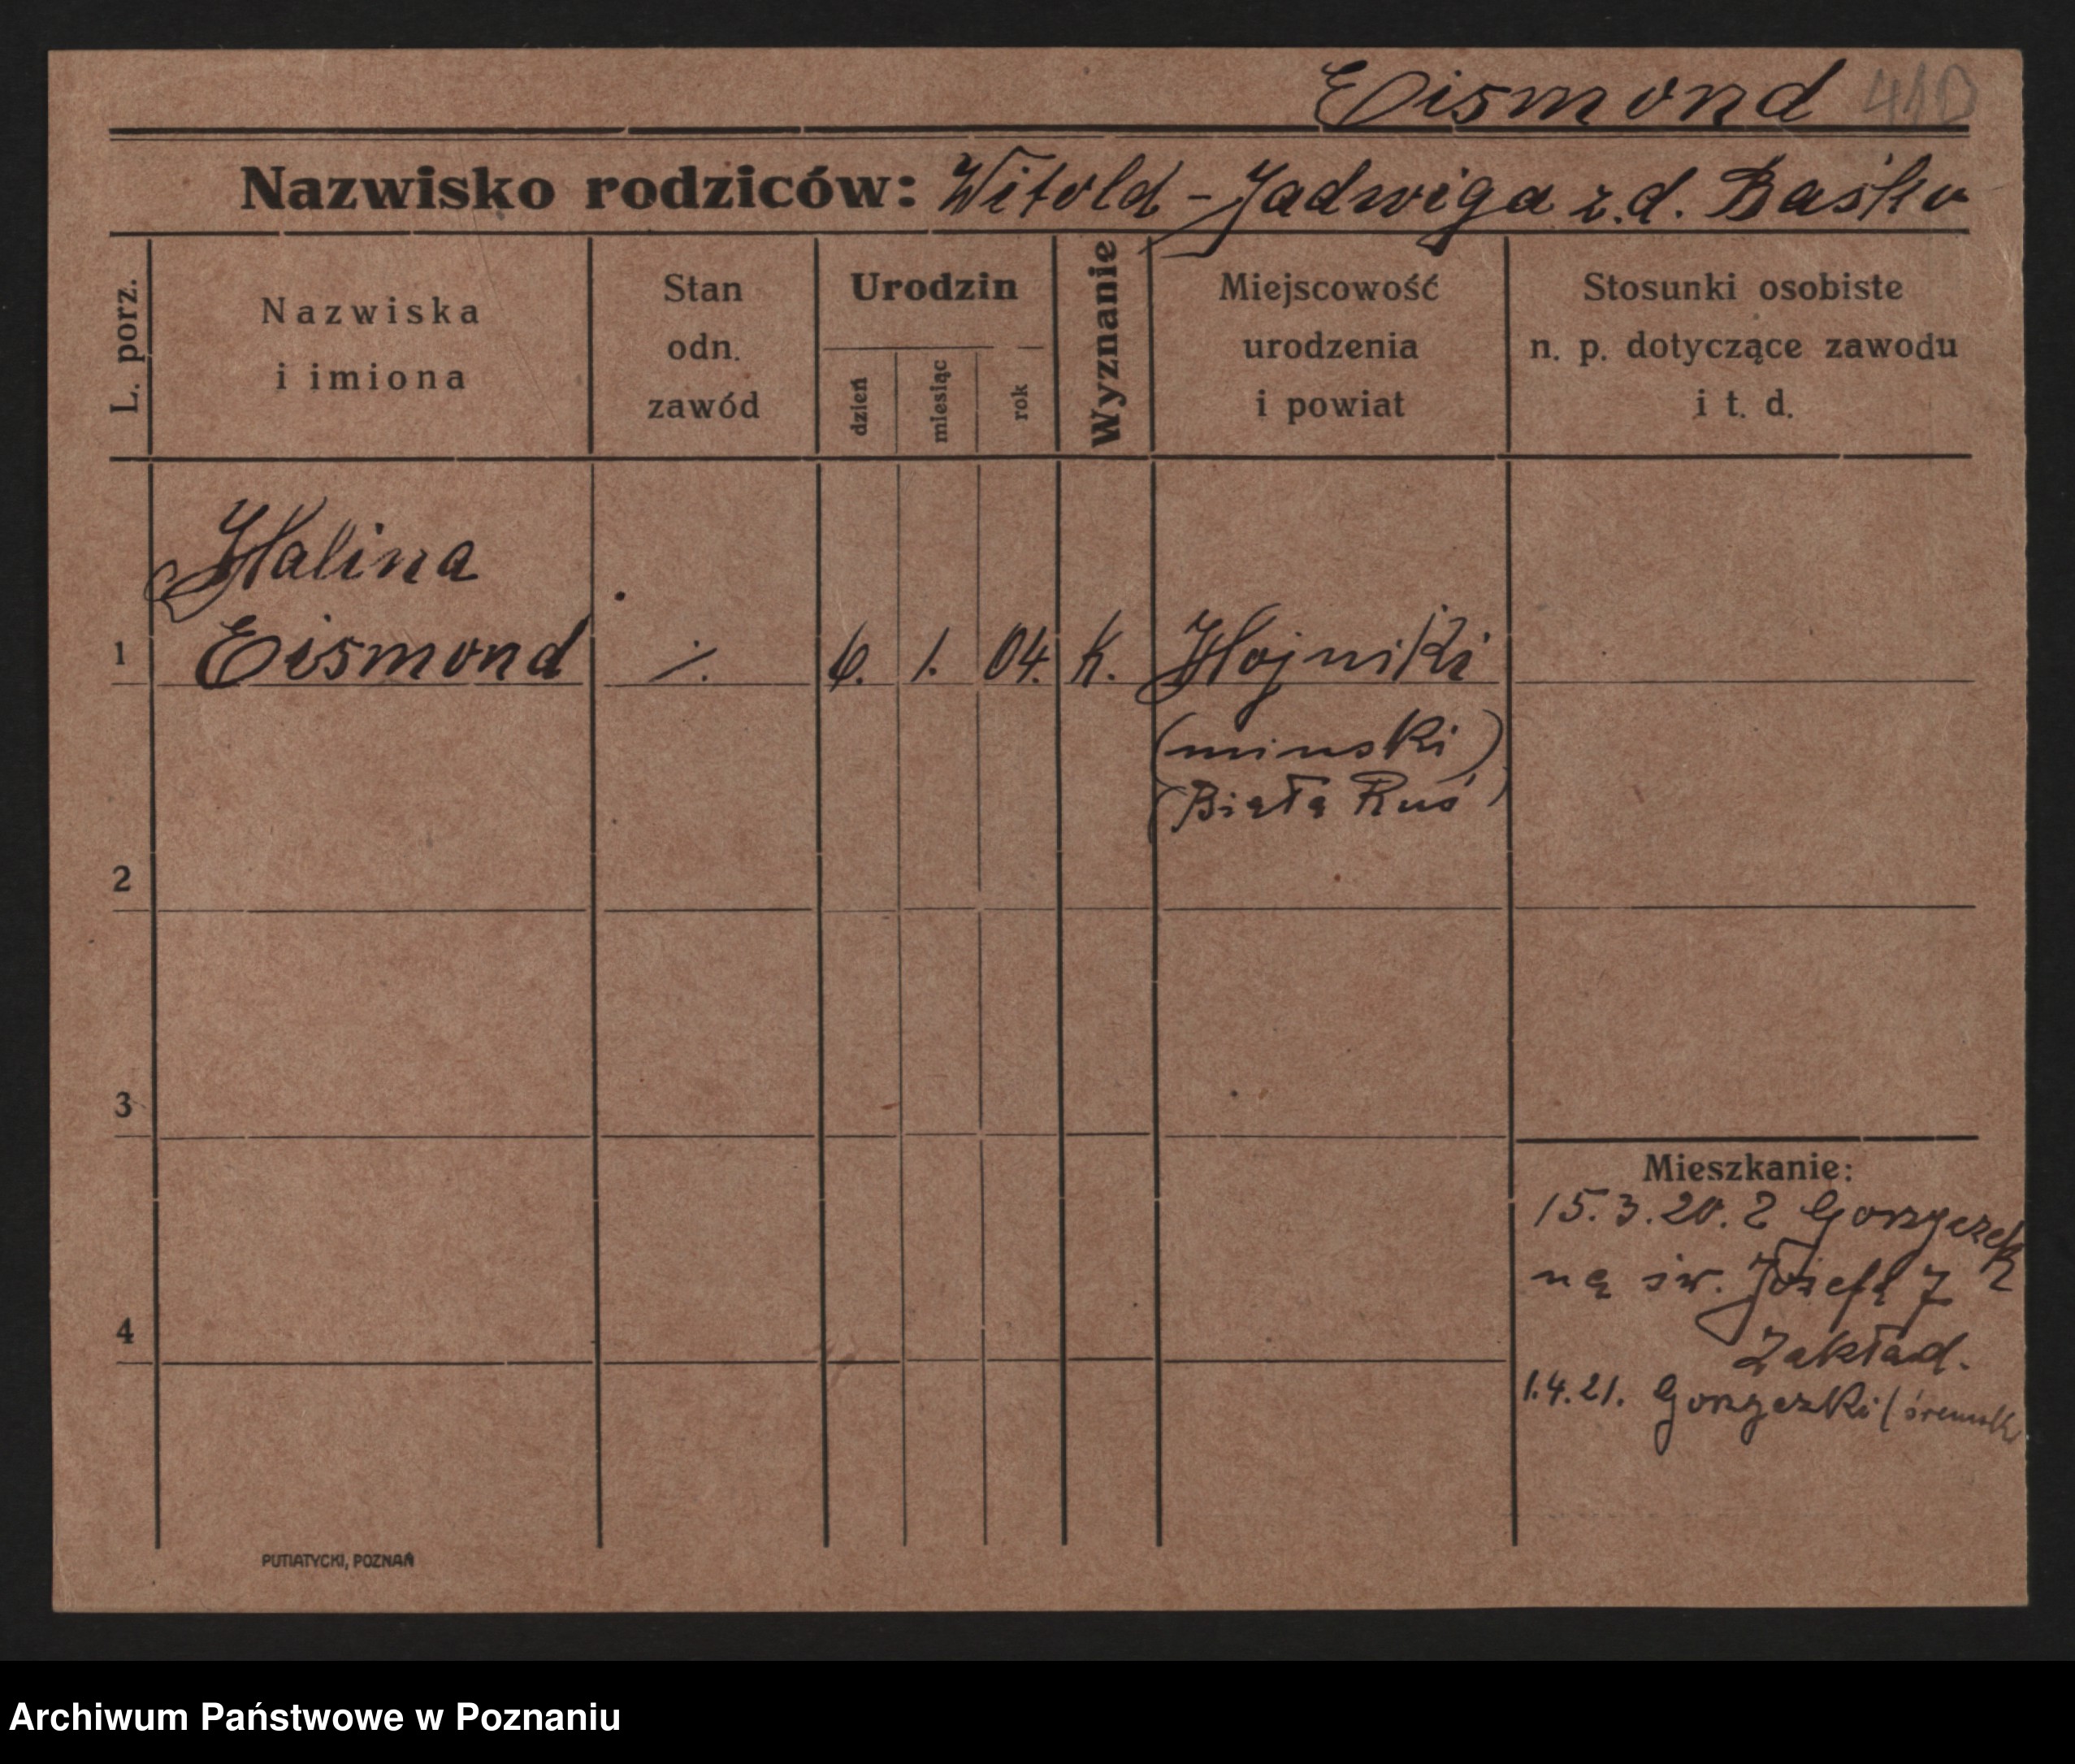 Eismond 410
Nazwisko rodziców: Witold - Jadwiga z.d. Baśko
L. porz.
Nazwiska
i imiona
Stan
odn.
zawód
Urodzin
dzień
miesiąc
rok
Wyznanie
Miejscowość
urodzenia
i powiat
Stosunki osobiste
n. p. dotyczące zawodu
i t. d.
Halina
1 Eismond ./. 6. 1. 04. K. Hojniki
(minski)
(Biała Ruś)
2
3
Mieszkanie:
15.3.20. z Gorzyczek
na św. Józefa 7
4 Zakład.
1.4.21. Gorzyczki (śremski
PUTIATYCKI, POZNAŃ
Archiwum Państwowe w Poznaniu